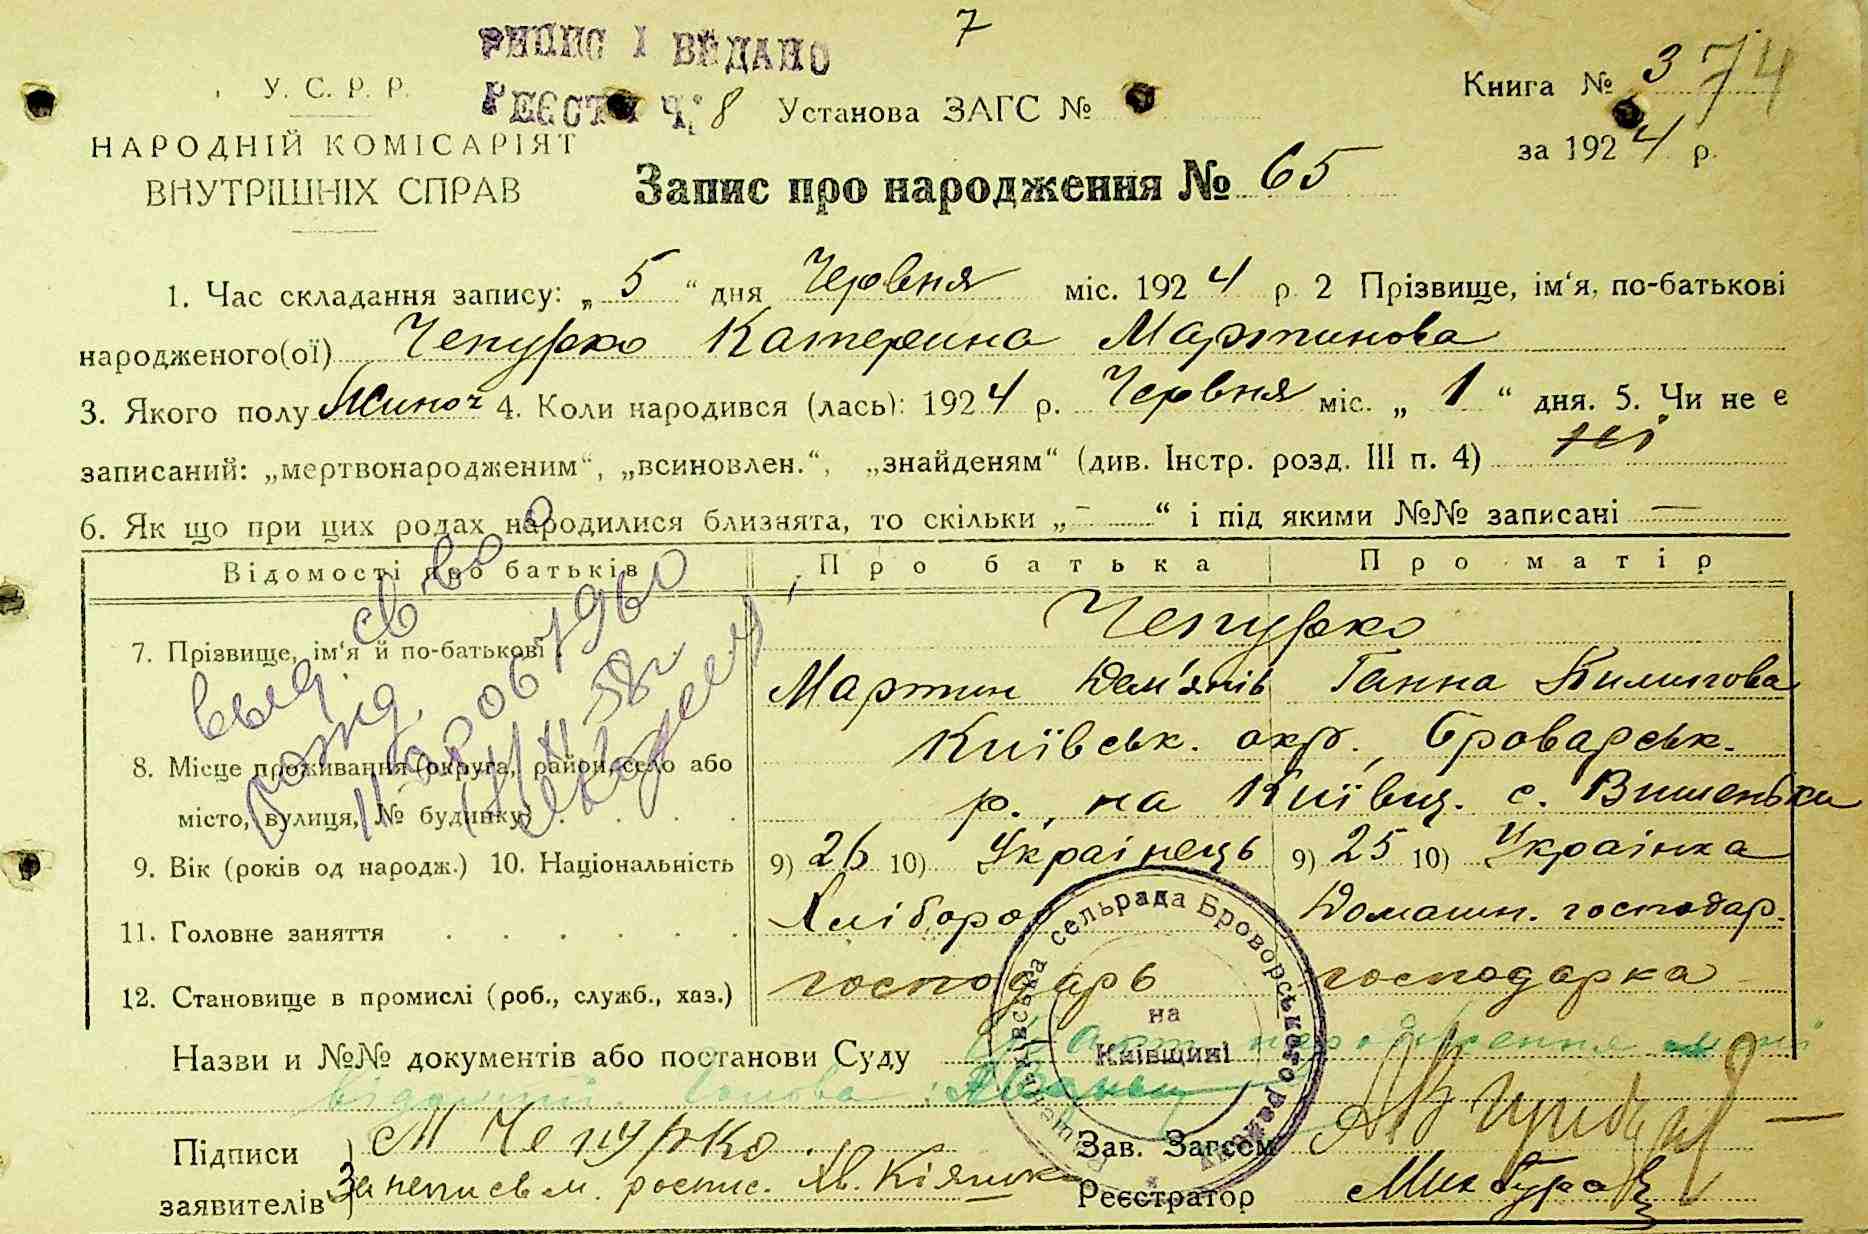 7
ВИПИС І ВИДАНО
РЕЄСТР Ч. 8
У. С. Р. Р.
НАРОДНІЙ КОМІСАРІЯТ
ВНУТРІШНІХ СПРАВ
Установа ЗАГС №
Книга № 3 74
за 1924 р.
Запис про народження № 65
1. Час складання запису: „5“ дня Червня міс. 1924 р. 2 Прізвище, ім‘я, по-батькові
народженого(ої) Чепурко Катерина Мартинова
3. Якого полу Жиноч 4. Коли народився (лась): 1924 р. Червня міс. „1“ дня. 5. Чи не є
записаний: „мертвонародженим“, „всиновлен.“, „знайденям“ (див. Інстр. розд. III п. 4) ні
6. Як що при цих родах народилися близнята, то скільки „-“ і під якими №№ записані —
Відомості про батьків Про батька Про матір
Чепурко
7. Прізвище, ім‘я й по-батькові Мартин Дем'янів Ганна
8. Місце проживання (округа, район, село або Київськ. окр., Броварськ.
місто, вулиця, № будинку) р., на Київщ. с. Вишеньки
9. Вік (років од народж.) 10. Національність 9) 26 10) Українець 9) 25 10) Українка
11. Головне заняття Хлібороб Домашн. господар.
12. Становище в промислі (роб., служб., хаз.) господарь господарка
выд. св-во
рожд.
Назви и №№ документів або постанови Суду
Акт народження
Голова
сельрада Броворського району
на
Київщині
Підписи
заявителів
М Чепурко
За неписьм. роспис. Ів. Кіяшко
Зав. Загсом
Реєстратор